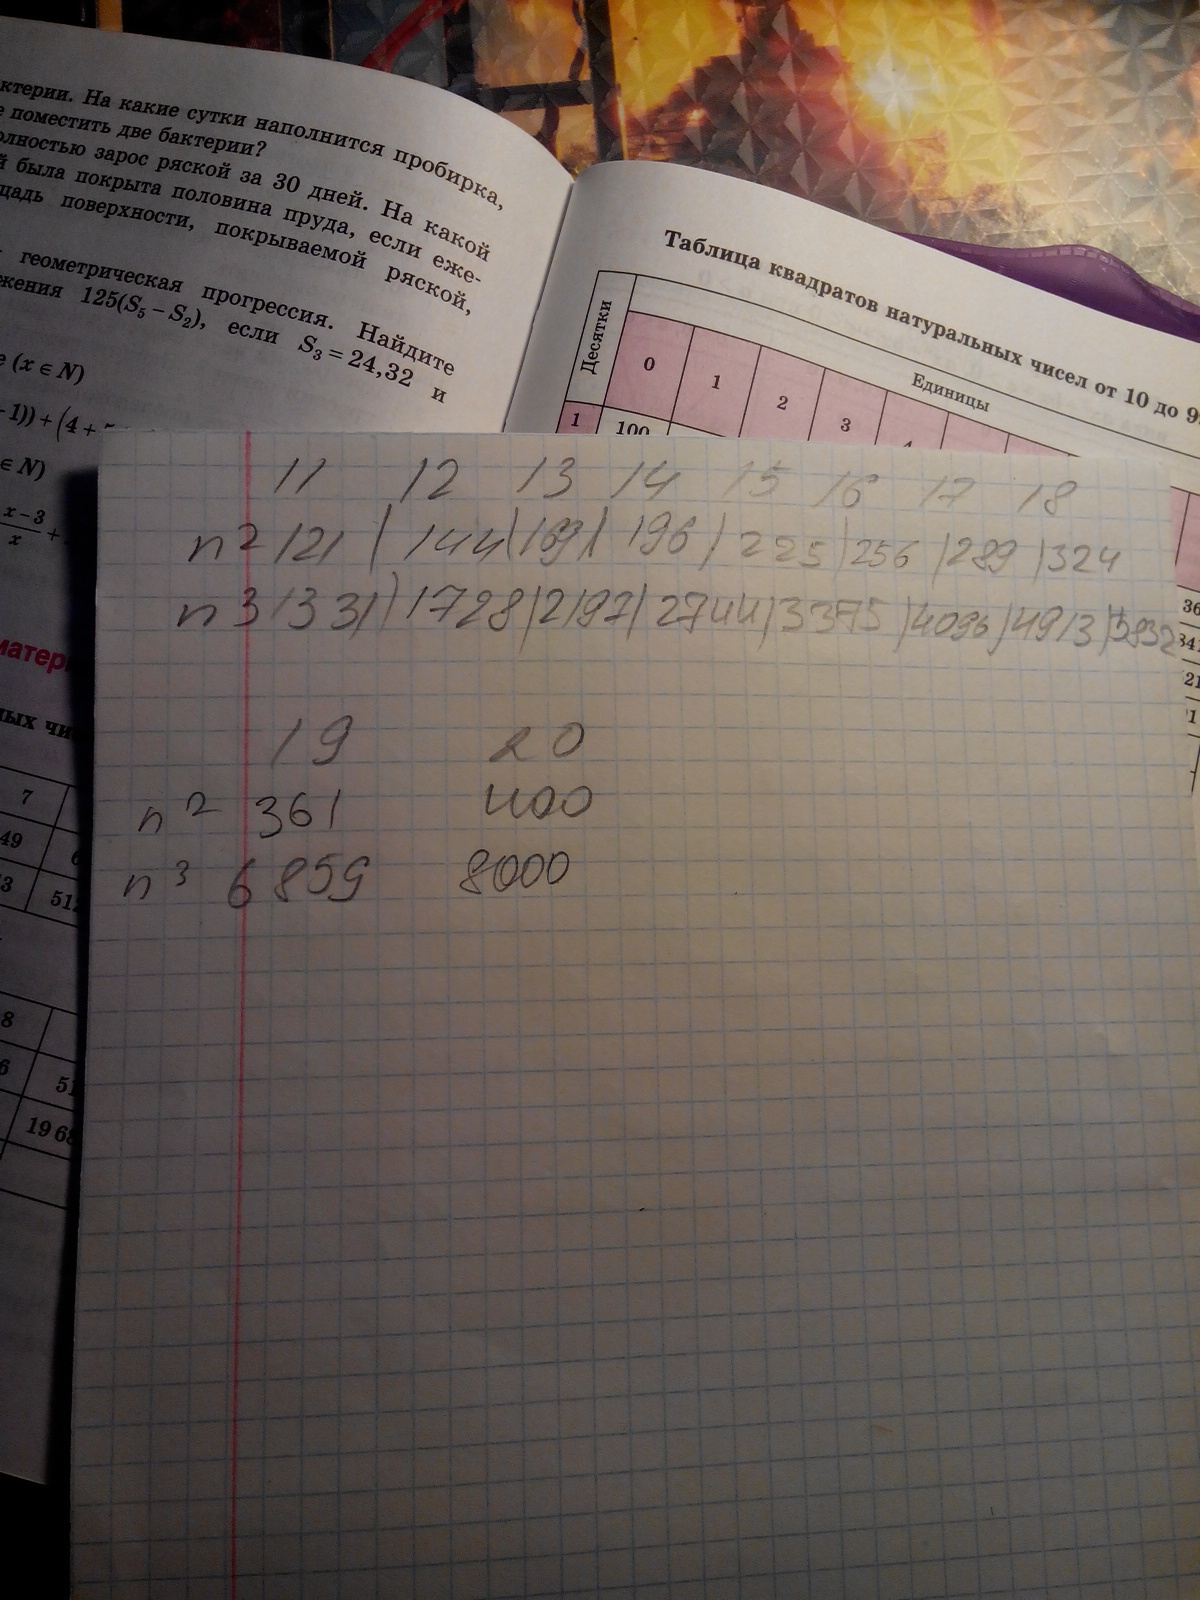 ктерии. На какие сутки наполнится пробирка,
поместить две бактерии?
олностью зарос ряской за 30 дней. На какой
й была покрыта половина пруда, если еже-
щадь поверхности, покрываемой ряской,
геометрическая прогрессия. Найдите
жения 125(S₅ – S₂), если S₃ = 24,32 и
е (x ∈ N)
-1)) + (4 +
∈ N)
x – 3
x +
матери
ных чи
7
49
3 512
8
6 51
19 68
Таблица квадратов натуральных чисел от 10 до 9
Десятки Единицы
0 1 2 3
1 100
36
341
21
1
11 12 13 14 15 16 17 18
n² 121 | 144 | 169 | 196 | 225 | 256 | 289 | 324
n³ 1331 | 1728 | 2197 | 2744 | 3375 | 4096 | 4913 | 5832
19 20
n² 361 400
n³ 6859 8000